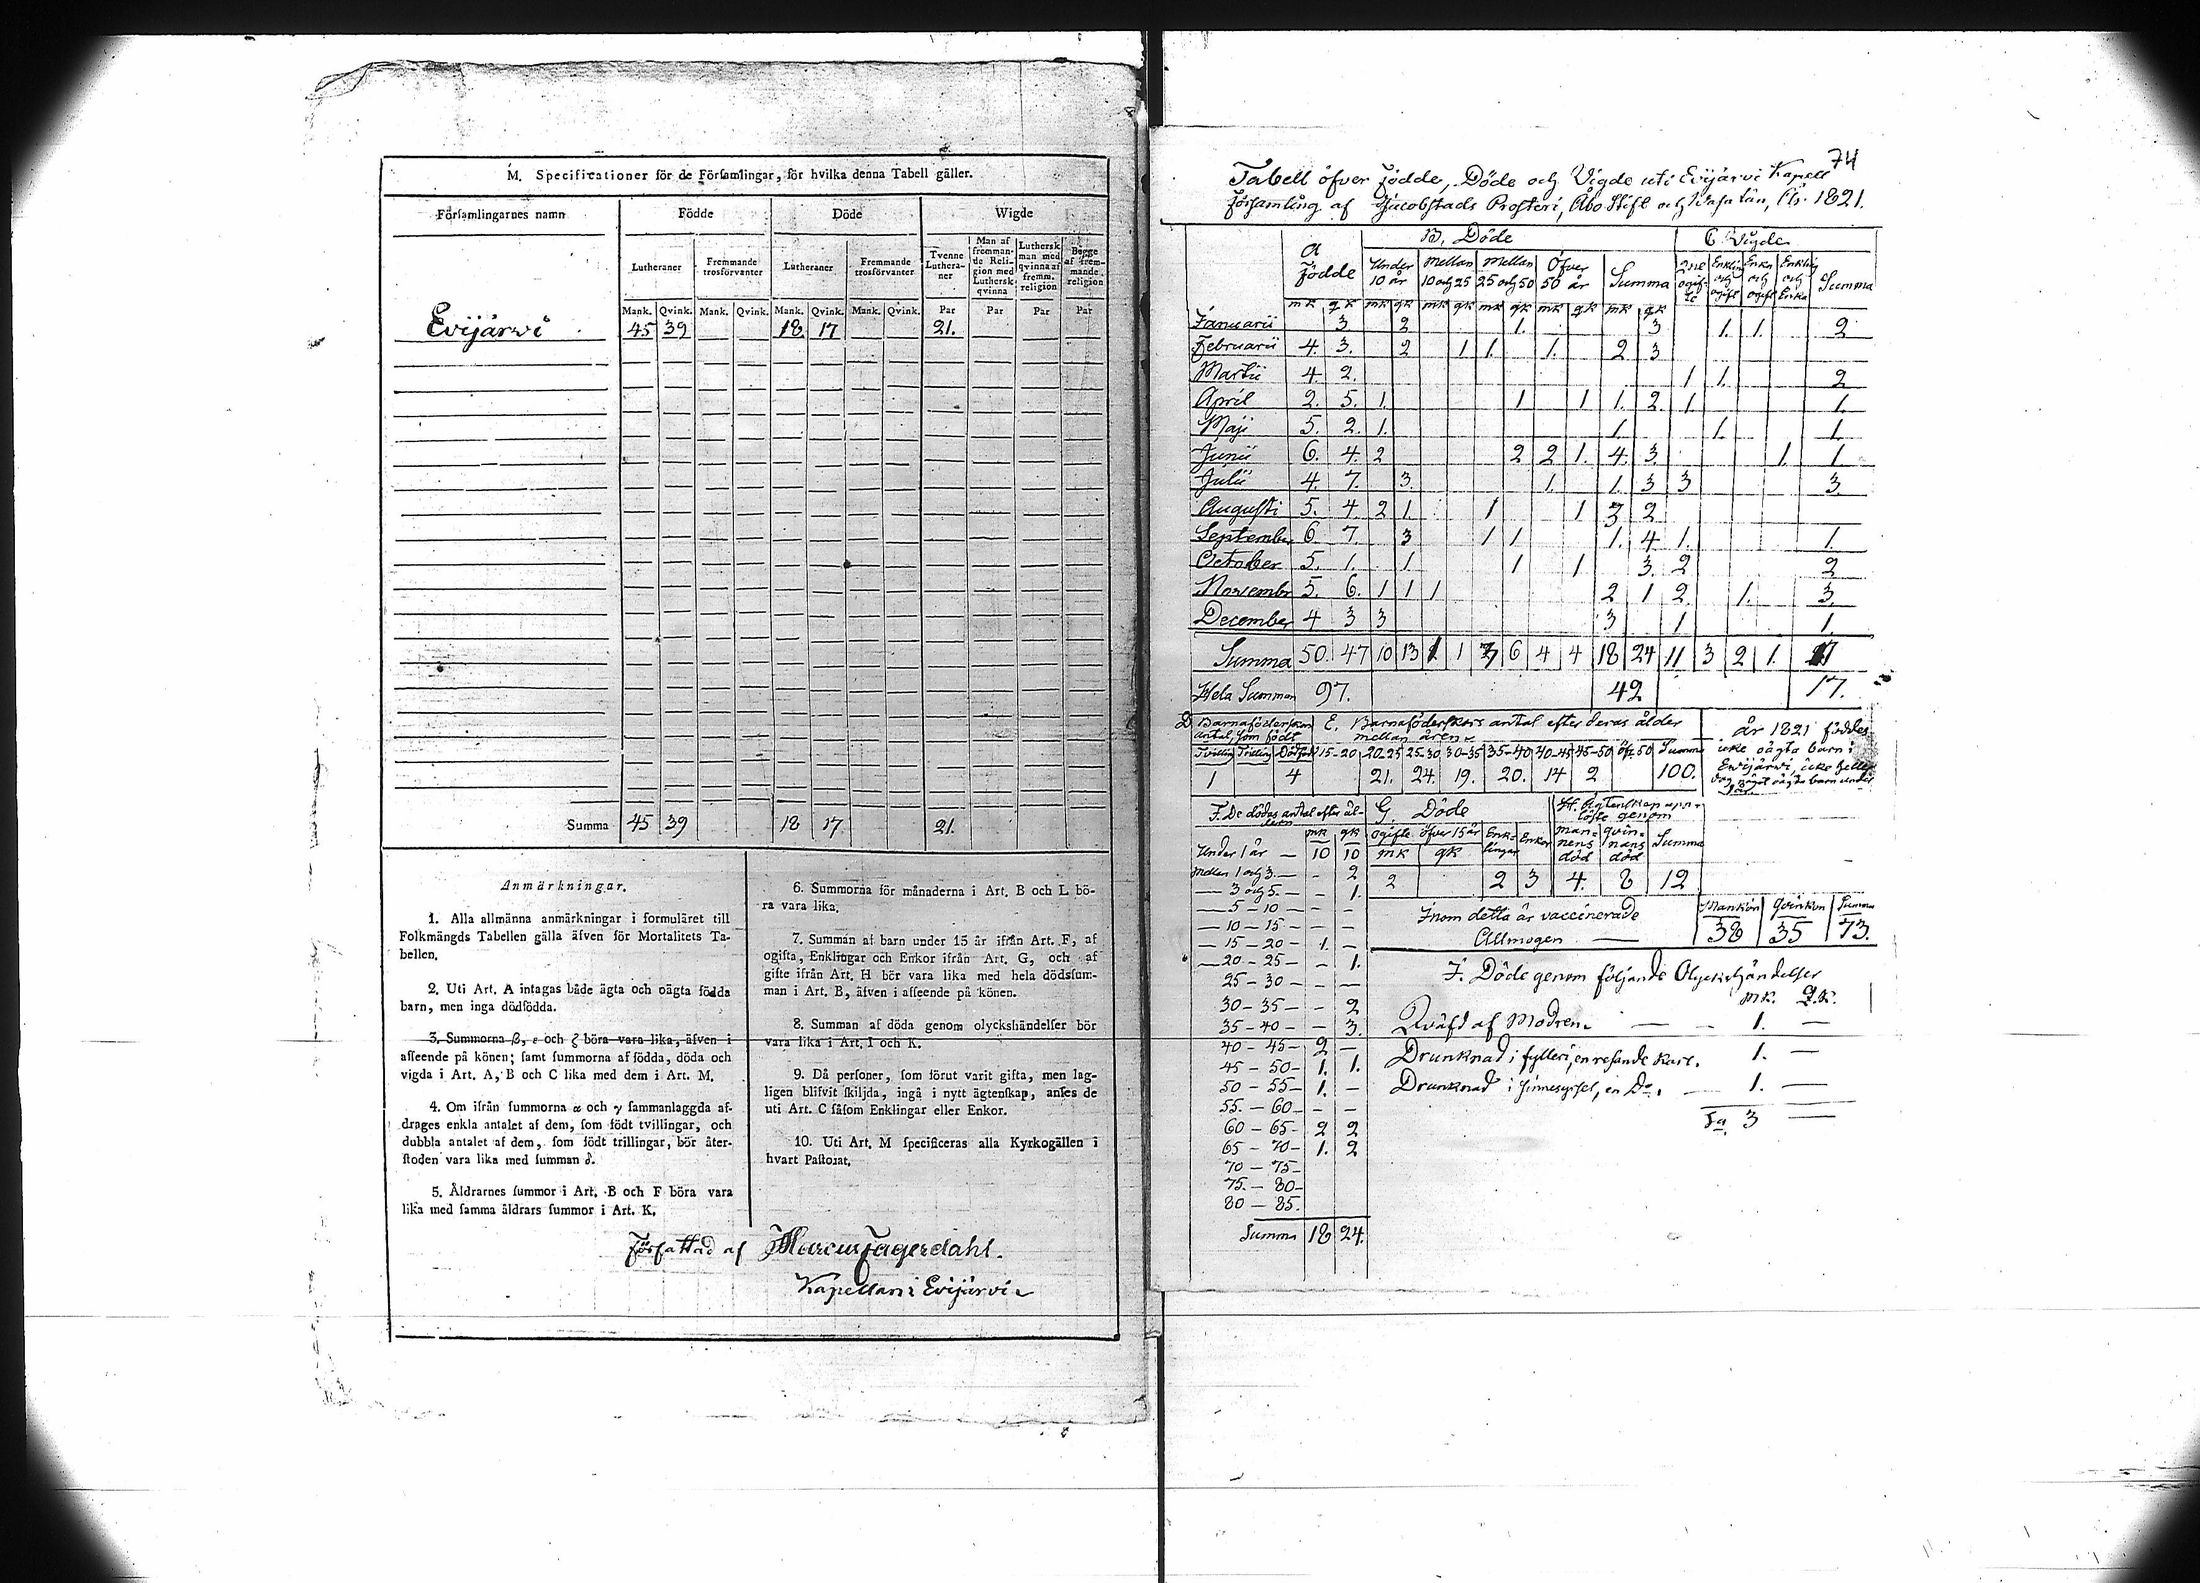 M. Specificationer för de Församlingar, för hvilka denna Tabell gäller.
Församlingarnes namn | Födde | Döde | Wigde
Lutheraner | Fremmande trosförvanter | Lutheraner | Fremmande trosförvanter | Tvenne Lutheraner | Man af fremmande Religion med Luthersk qvinna | Luthersk man med qvinna af fremm. religion | Begge af fremmande religion
Mank. | Qvink. | Mank. | Qvink. | Mank. | Qvink. | Mank. | Qvink. | Par | Par | Par | Par
Evijärvi | 45 | 39 | 18 | 17 | 21.
Summa | 45 | 39 | 18 | 17 | 21.
Anmärkningar.
1. Alla allmänna anmärkningar i formuläret till
Folkmängds Tabellen gälla äfven för Mortalitets Ta-
bellen.
2. Uti Art. A intagas både ägta och oägta födda
barn, men inga dödfödda.
3. Summorna β, ε och ζ böra vara lika, äfven i
afseende på könen; samt summorna af födda, döda och
vigda i Art. A, B och C lika med dem i Art. M.
4. Om ifrån summorna α och γ sammanlaggda af-
drages enkla antalet af dem, som födt tvillingar, och
dubbla antalet af dem, som födt trillingar, bör åter-
stoden vara lika med summan δ.
5. Åldrarnes summor i Art. B och F böra vara
lika med samma åldrars summor i Art. K.
6. Summorna för månaderna i Art. B och L bö-
ra vara lika.
7. Summan af barn under 15 år ifrån Art. F, af
ogifta, Enklingar och Enkor ifrån Art. G, och af
gifte ifrån Art. H bör vara lika med hela dödssum-
man i Art. B, äfven i afseende på könen.
8. Summan af döda genom olyckshändelser bör
vara lika i Art. I och K.
9. Då personer, som förut varit gifta, men lag-
ligen blifvit skiljda, ingå i nytt ägtenskap, anses de
uti Art. C såsom Enklingar eller Enkor.
10. Uti Art. M specificeras alla Kyrkogällen i
hvart Pastorat.
Författad af Marcus Fagerdahl.
Kapellan i Evijärvi
74
Tabell öfver Födde, Döde och Vigde uti Evijärvi Kapell
församling af Jacobstads Prosteri, Åbo Stift och Vasa Län, År 1821.
A Födde | B. Döde | C. Vigde
Under 10 år | Mellan 10 och 25 | Mellan 25 och 50 | Öfver 50 år | Summa | 2ne ogifte | Enkling och ogift | Enka och ogift | Enkling och Enka | Summa
mk | qk | mk | qk | mk | qk | mk | qk | mk | qk | mk | qk
Januarii | 3 | 2 | 1. | 3 | 1. | 1. | 2
Februarii | 4. | 3. | 2 | 1 | 1. | 1. | 2 | 3
Martii | 4. | 2. | 1 | 1. | 2
April | 2. | 5. | 1. | 1 | 1 | 1. | 2. | 1. | 1.
Maji | 5. | 2. | 1. | 1. | 1. | 1.
Junii | 6. | 4. | 2 | 2 | 2 | 1. | 4. | 3. | 1. | 1
Julii | 4. | 7. | 3. | 1. | 1. | 3 | 3 | 3.
Augusti | 5. | 4 | 2 | 1. | 1 | 1 | 3 | 2
September | 6 | 7. | 3 | 1 | 1 | 1. | 4 | 1. | 1.
October | 5. | 1. | 1 | 1 | 1 | 3. | 2 | 2
Novembr | 5. | 6. | 1 | 1 | 1 | 2 | 1 | 2. | 1. | 3.
December | 4 | 3 | 3 | 3 | 1 | 1.
Summa | 50. | 47 | 10 | 13 | 1 | 1 | 3 | 6 | 4 | 4 | 18 | 24 | 11 | 3 | 2 | 1. | 17
Hela Summan | 97. | 42 | 17.
D Barnaföderskors antal som födt | E. Barnaföderskors antal efter deras ålder mellan åren
Tvilling | Trilling | Dödfödt | 15-20 | 20-25 | 25-30 | 30-35 | 35-40 | 40-45 | 45-50 | öfr. 50 | Summa
1 | 4 | 21. | 24. | 19. | 20. | 14 | 2 | 100.
År 1821 föddes
icke oägta barn i
Evijärvi, icke heller
dog något oägta barn under
F. De dödas antal efter åldern | mk | qk
Under 1 år — | 10 | 10
Mellan 1 och 3. — | - | 2
— 3 och 5. — | - | 1.
— 5 - 10 — | — | —
— 10 - 15 — | — | —
— 15 - 20 - | 1. | —
— 20 - 25 — | - | 1.
25 - 30 — | — | —
30 - 35 — | - | 2
35 - 40 - | - | 3.
40 - 45 - | 2 | —
45 - 50 - | 1. | 1.
50 - 55 - | 1. | -
55. - 60 - | - | —
60 - 65 - | 2 | 2
65 - 70 - | 1. | 2
70 - 75 -
75. - 80 -
80 - 85.
Summa | 18 | 24.
G. Döde
ogifte öfver 15 år | Enklingar | Enkor
mk | qk
2 | 2 | 3
H. Ägtenskap upplöste genom
mannens död | qvinnans död | Summa
4. | 8 | 12
Inom detta år vaccinerade | Mankön | Qvinkön | Summa
Allmogen — | 38 | 35 | 73.
I. Döde genom följande Olyckshändelser
mk. | Q.k.
Qväfd af Modren. — | 1. | —
Drunknad i fylleri, en resande Karl. | 1. | —
Drunknad i sinnesyrsel, en Do. | 1. | —
Sa. 3 —